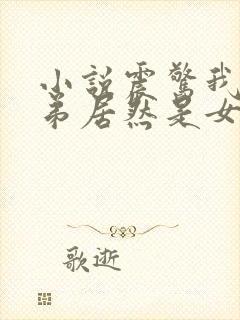 小說震驚我
弟居然是女
歌逝